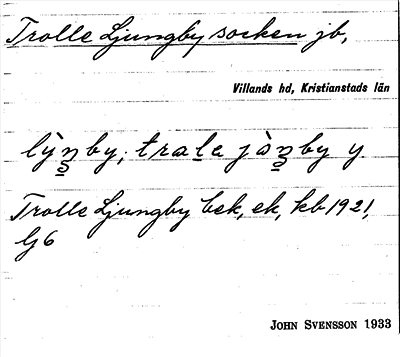 Trolle Ljungby socken jb,
Villands hd, Kristianstads län
Trolle Ljungby bsk, ek, kb 1921,
Lj 6
JOHN SVENSSON 1933